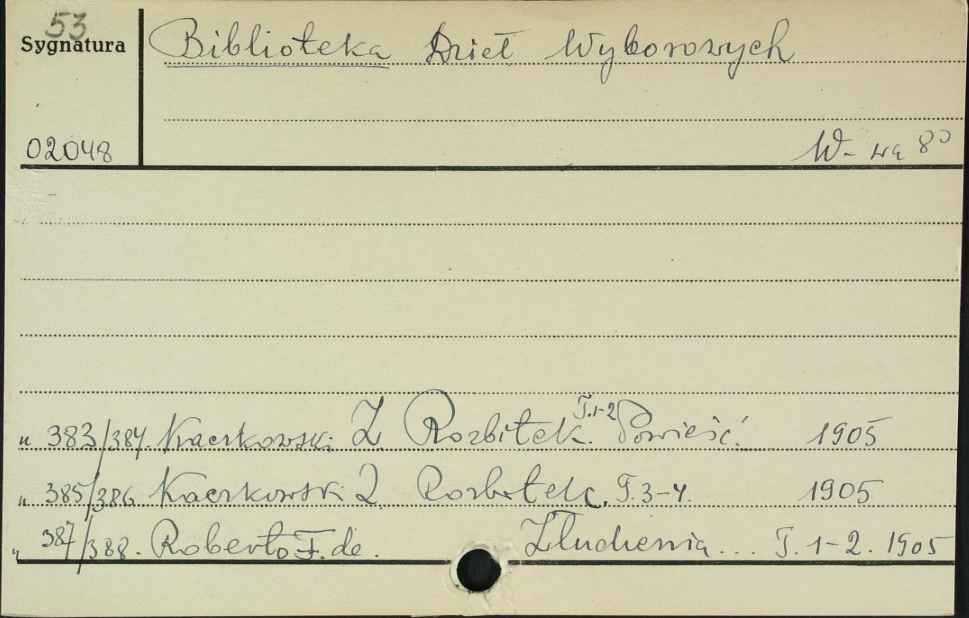 53
Sygnatura
Biblioteka Dzieł Wyborowych
02048
W-wa 8°
" 383/384. Kaczkowski Z. Rozbitek. T.1-2 Powieść. 1905
" 385/386 Kaczkowski Z. Rozbitek. T. 3-4. 1905
" 387/388. Roberto F. de. Złudzenia... T. 1-2. 1905